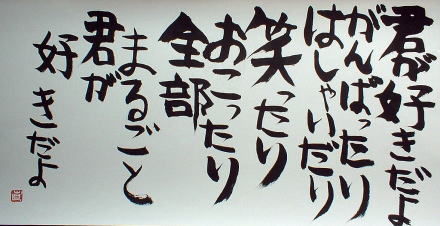 君が好きだよ
がんばったり
はしゃいだり
笑ったり
おこったり
全部
まるごと
君が
好きだよ